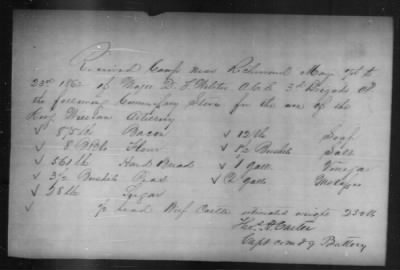 Received Camp near Richmond May 1st to
23rd 1862 of Major D. T. Webster A.C.S. 3rd Brigade
the following Commissary Stores for the use of the
King William Artillery
√ 515 lb Bacon √ 12 lb Soap
√ 8 Bbls Flour √ 1 1/2 Bushels Salt
√ 560 lb Hard Bread √ 1 gall Vinegar
√ 3 1/2 Bushels Peas √ 2 galls Molasses
√ 28 lb Sugar
√ 1/2 head Beef Cattle estimated weight 230 lb
Thos. H. Carter
Capt comdg Battery